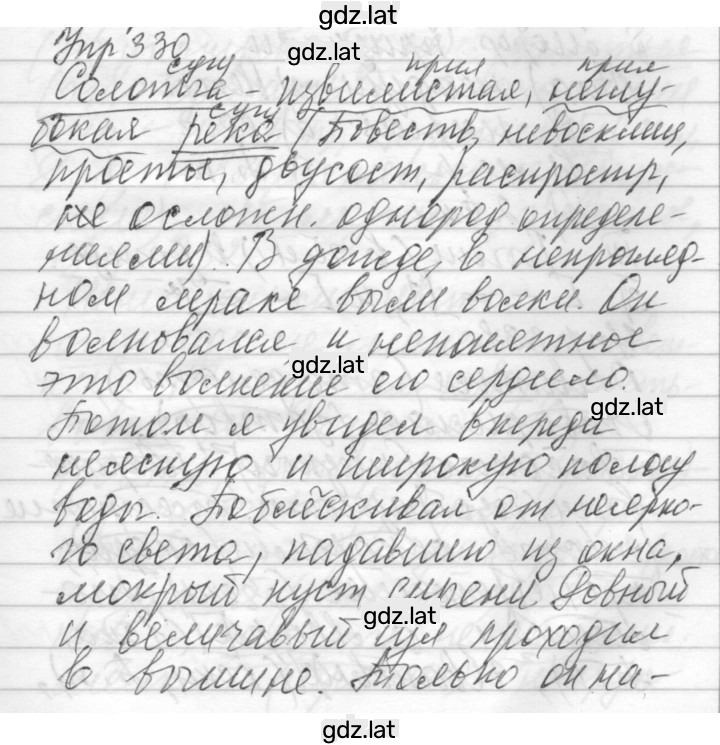 gdz.lat
Упр 330
gdz.lat
сущ прил прил
Солотча - извилистая, неглу-
сущ
бокая река (Повеств, невосклиц,
простые, двусост, распростр,
не осложн. однород определе-
ниями). В дожде, в непрогляд-
ном мраке выли волки. Он
gdz.lat
волновался и непонятное
gdz.lat
это волнение его сердило.
gdz.lat
Потом я увидел впереди
неясную и широкую полосу
воды. Поблёскивал от неярко-
го света, падавшего из окна,
мокрый куст сирени Ровный
gdz.lat
и величавый гул проходил
в вышине. Только он на-
gdz.lat